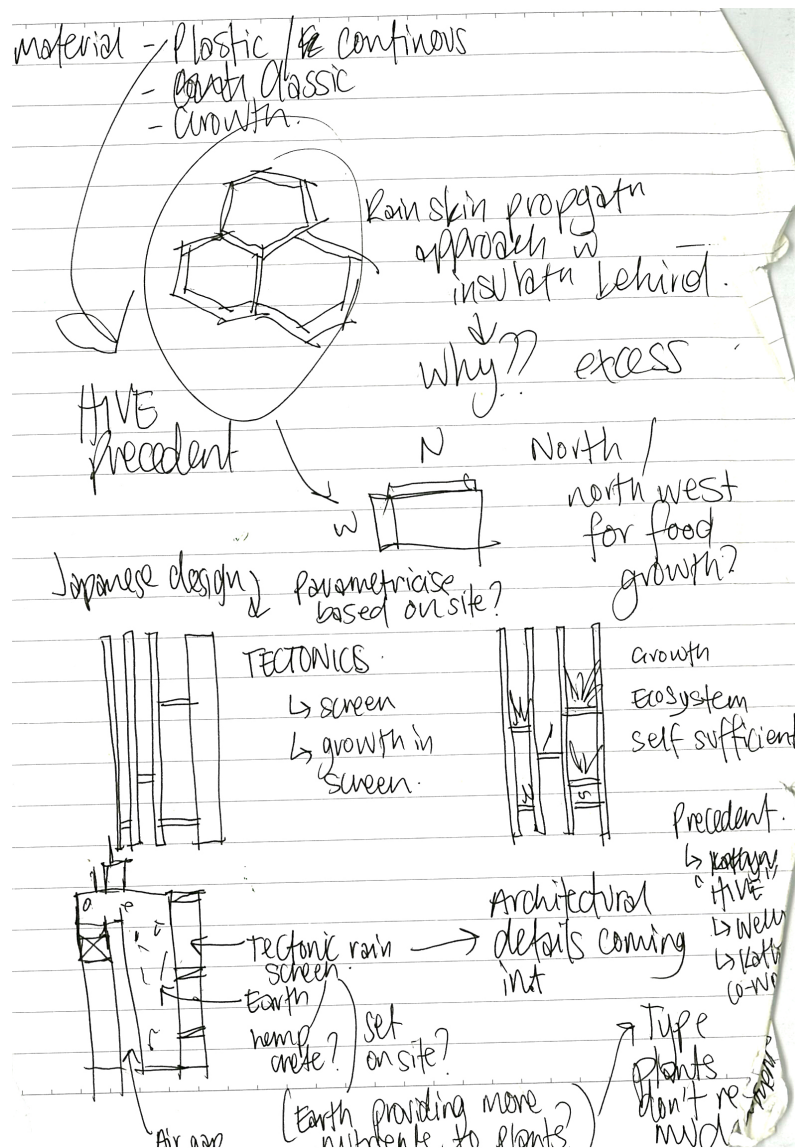 material - Plastic / continous
- earth Classic
- Growth.
Rain skin propgatn
approach w
insulatn behind.
why?? excess
HIVE
Precedent
N
W
North /
north west
for food
growth?
Japanese design
Parametricise
based on site?
TECTONICS
↳ screen
↳ growth in
screen.
Growth
Ecosystem
self sufficient
Precedent.
"HIVE"
Tectonic rain
screen.
Earth
hemp
crete?
set
on site?
Architectural
details coming
int
Air gap
(Earth providing more
nutrients to plants?
Type
plants
don't re
mud